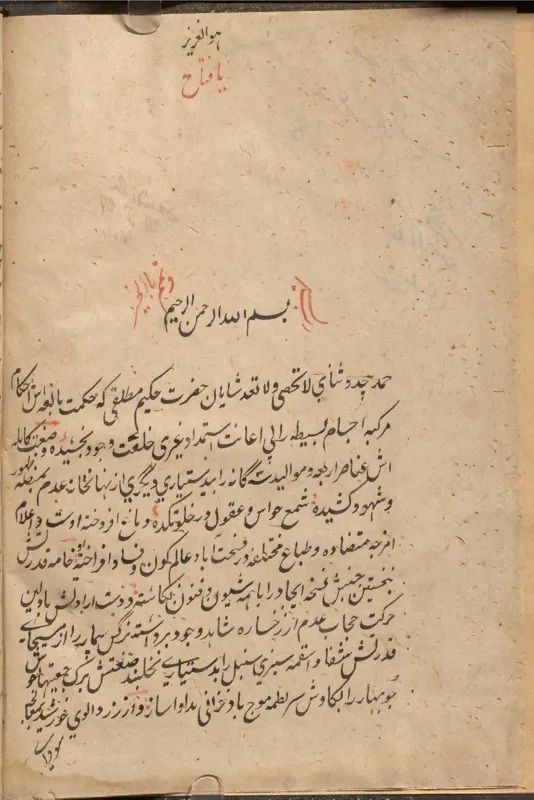 هو العزیز
یا فتاح
رب
بسم الله الرحمن الرحیم
وتمم بالخیر
حمد بیحد و ثنای لا تحصی و لا تعد شایان حضرت حکیم مطلقی که حکمت بالغه اش احکام
مرکبه اجسام بسیطه را بی اعانت استمداد غیری خلعت وجود بخشیده و صنعت کامله
اش عناصر اربعه و موالید ثلثه گانه را بدستیاری دیگری از نهانخانه عدم بمنصه ظهور
و شهود کشیده شمع حواس و عقول در خلوتکده دماغ افروخته اوست و اعلام
امزجه متضاده و طبایع مختلفه در فسحت آباد عالم کون و فساد افراخته او خامه قدرتش
نخستین جنبش نسخه ایجاد را با همه شیون و فنون نگاشته و دست ارادتش باولین
حرکت حجاب عدم از رخساره شاهد وجود برداشته نرگس بیمار را از مسیحای
قدرتش شفا و سنبل را بدستیاری نخلبند صنعتش
جویبار را بکاوش سر لطمه موج باد خزانی مداوا ساز و از زرد آلوی خورشید